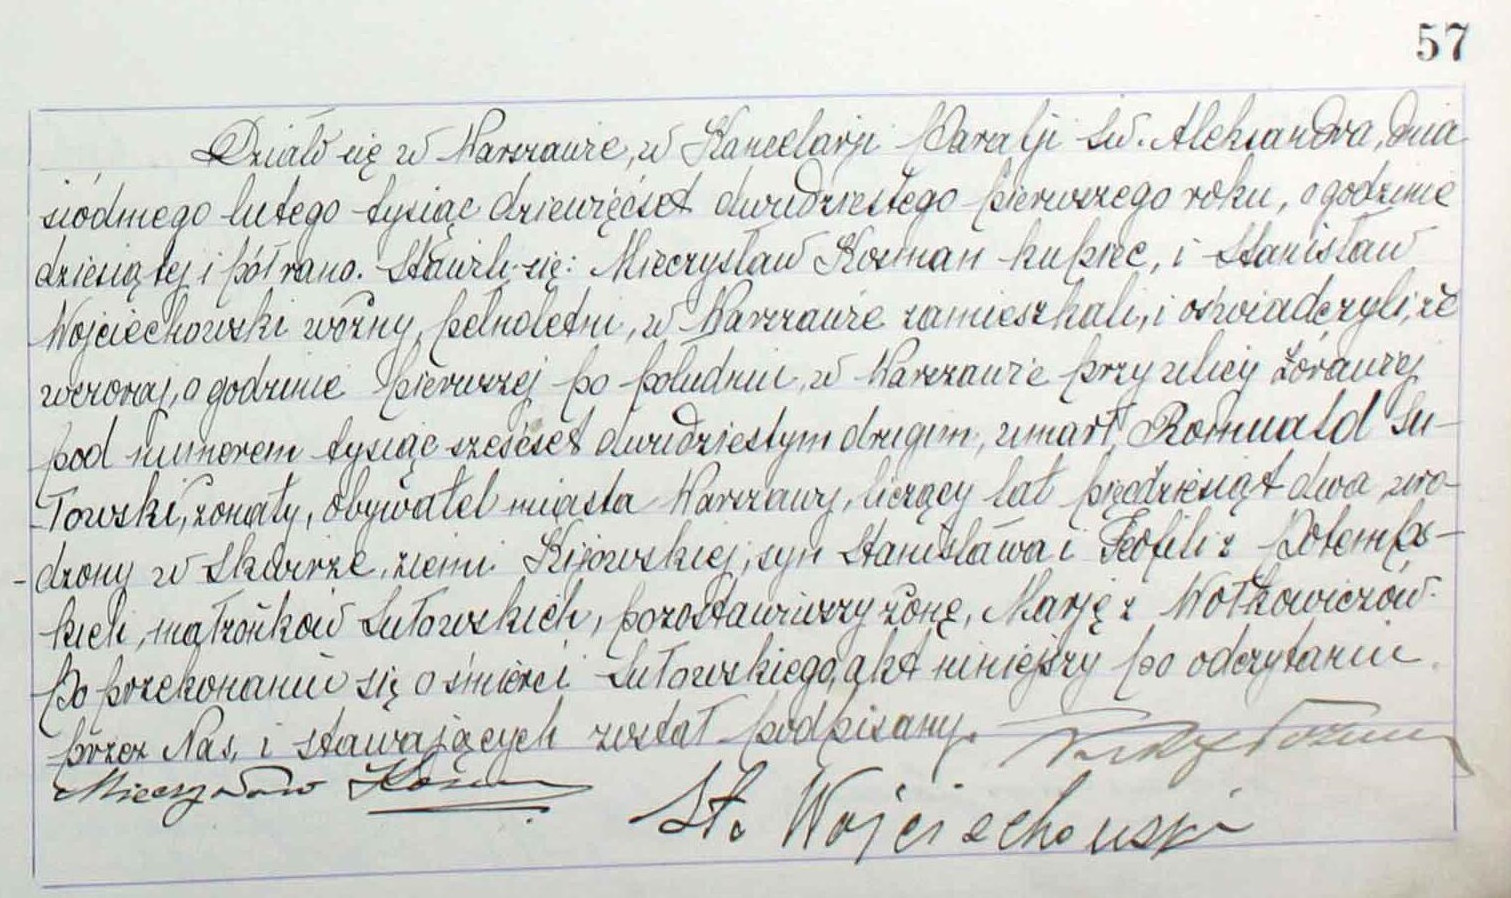 57
Działo się w Warszawie, w Kancelarji Parafji św. Aleksandra, dnia
siódmego lutego tysiąc dziewięćset dwudziestego pierwszego roku, o godzinie
dziesiątej i pół rano. Stawili się: Mieczysław Kosman kupiec, i Stanisław
Wojciechowski woźny, pełnoletni, w Warszawie zamieszkali, i oświadczyli, że
wczoraj, o godzinie pierwszej po południu, w Warszawie przy ulicy Żórawiej
pod numerem tysiąc sześćset dwudziestym drugim, umarł Romuald Su-
łowski, żonaty, obywatel miasta Warszawy, liczący lat pięćdziesiąt dwa, uro-
-dzony w Skwirze, ziemi Kijowskiej, syn Stanisława i Teofili z Potemps-
kich, małżonków Sutowskich, pozostawiwszy żonę, Marję z Wołkowiczów.
Po przekonaniu się o śmierci Sutowskiego, akt niniejszy po odczytaniu
przez Nas, i stawających został podpisany.
Mieczysław
St. Wojciechowski